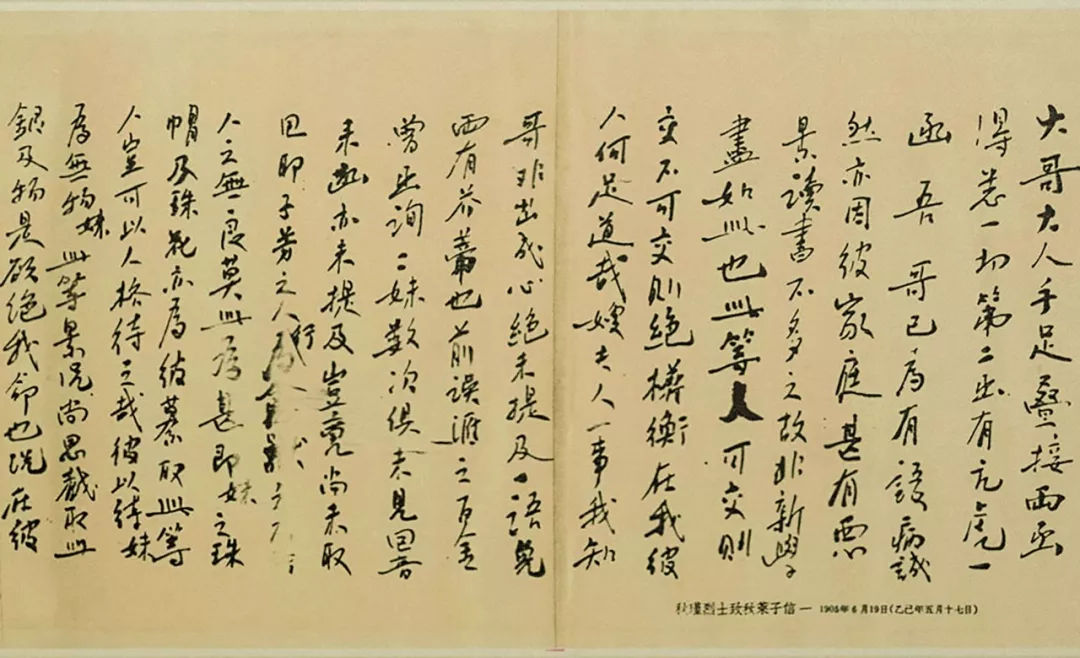 大哥大人手足疊接两函
得悉一切第二函有亢虎一
函吾哥已為有誤病誠
然亦因彼家庭甚有惡
景讀書不多之故非新學
盡如此也此等人可交則
交不可交則絕權衡在我彼
人何足道哉嫂夫人一事我知
哥非出成心絕未提及一語免
两有芥蒂也前誤滙之百金
曾函詢二妹数次俱未見回音
来函亦未提及豈竟尚未取
回耶子芳之人行為
人之無良莫此為甚即妹之珠
帽及珠花亦為彼纂取此等
人豈可以人格待之哉彼以待妹
為無物妹此等景况尚思截取此
銀及物是欲絕我命也况在彼
秋瑾烈士致秋莱子信一 1905年6月19日(乙巳年五月十七日)